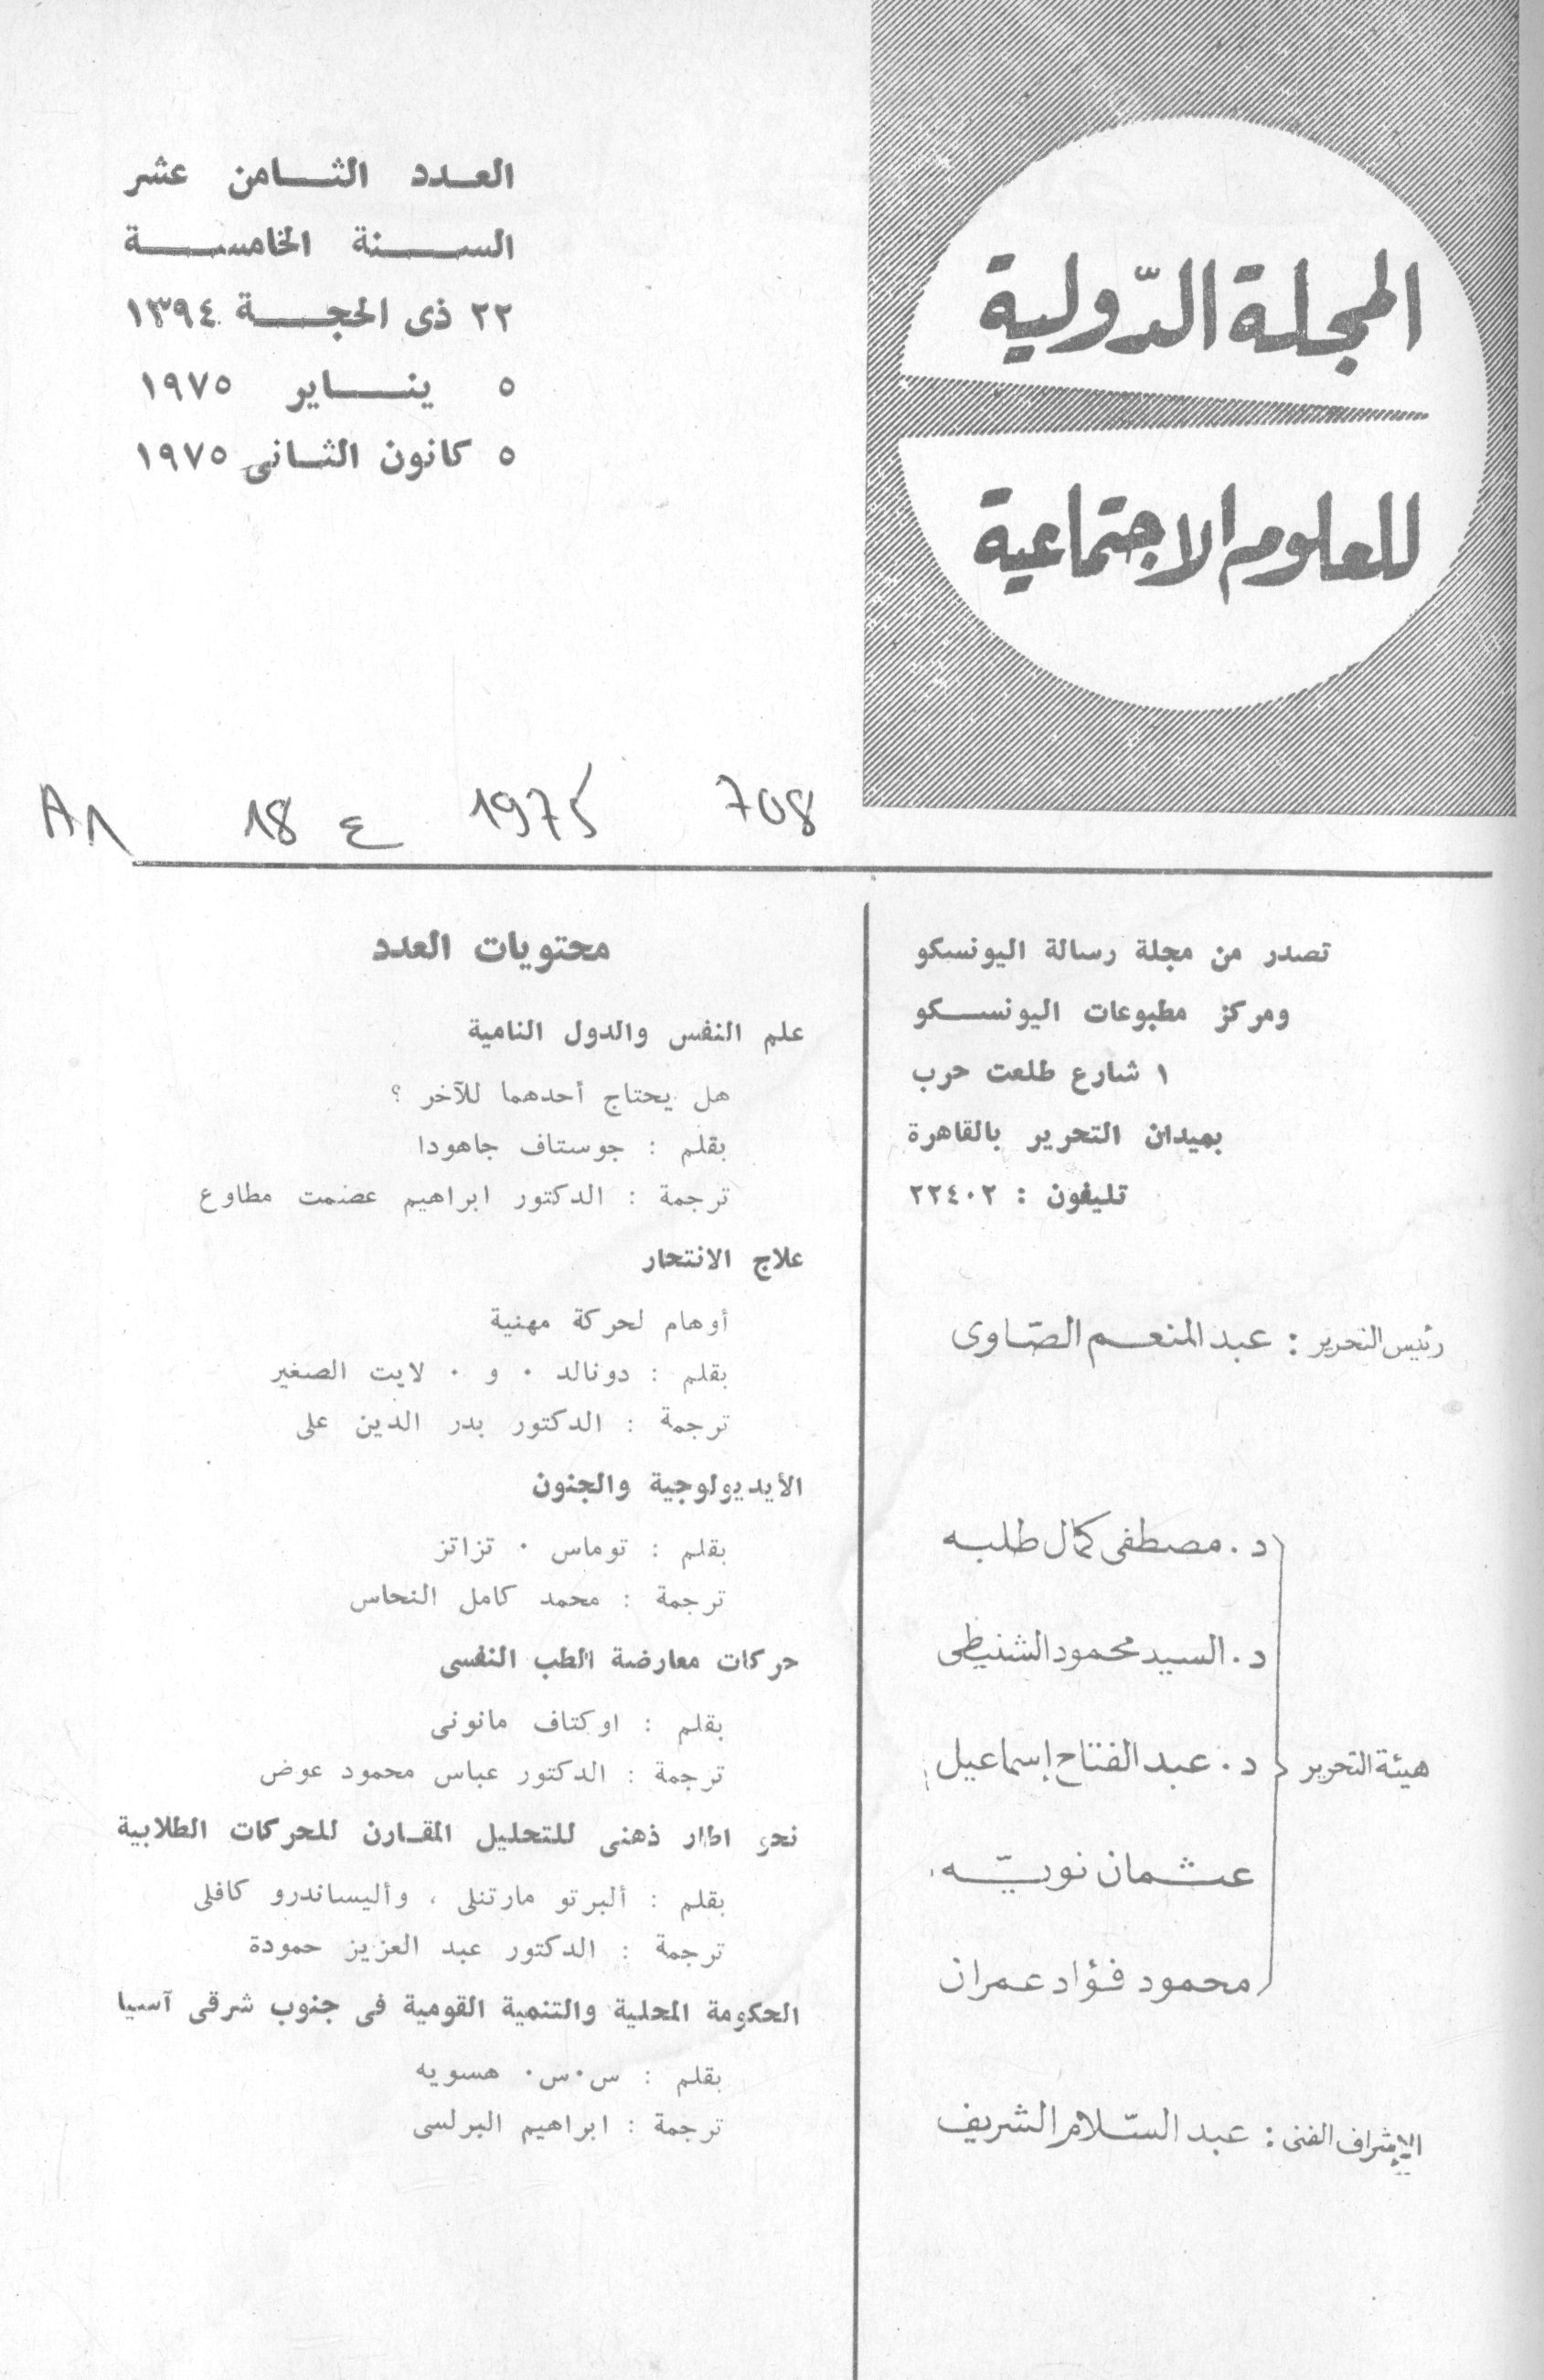 المجلة الدّولية
للعلوم الاجتماعية
العدد الثامن عشر
السنة الخامسة
٢٢ ذى الحجة ١٣٩٤
٥ يناير ١٩٧٥
٥ كانون الثانى ١٩٧٥
708 1975 ع 18 A1
تصدر من مجلة رسالة اليونسكو
ومركز مطبوعات اليونسكو
١ شارع طلعت حرب
بميدان التحرير بالقاهرة
تليفون : ٢٢٤٠٢
رئيس التحرير : عبد المنعم الصّاوى
د. مصطفى كمال طلبه
د. السيد محمود الشنيطى
هيئة التحرير د. عبد الفتاح إسماعيل
عثمان نويّه
محمود فؤاد عمران
الإشراف الفنى : عبد السّلام الشريف
محتويات العدد
علم النفس والدول النامية
هل يحتاج أحدهما للآخر ؟
بقلم : جوستاف جاهودا
ترجمة : الدكتور ابراهيم عصمت مطاوع
علاج الانتحار
أوهام لحركة مهنية
بقلم : دونالد ٠ و ٠ لايت الصغير
ترجمة : الدكتور بدر الدين على
الأيديولوجية والجنون
بقلم : توماس ٠ تزاتز
ترجمة : محمد كامل النحاس
حركات معارضة الطب النفسى
بقلم : اوكتاف مانونى
ترجمة : الدكتور عباس محمود عوض
نحو اطار ذهنى للتحليل المقارن للحركات الطلابية
بقلم : ألبرتو مارتنلى ، وأليساندرو كافلى
ترجمة : الدكتور عبد العزيز حمودة
الحكومة المحلية والتنمية القومية فى جنوب شرقى آسيا
بقلم : س٠س٠ هسويه
ترجمة : ابراهيم البرلسى